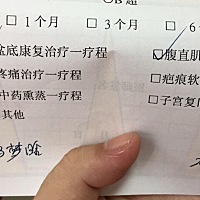 □ 1 个月 □ 3 个月 □ 6
盆底康复治疗一疗程 ☑ 腹直肌
疼痛治疗一疗程 □ 疤痕软
中药熏蒸一疗程 □ 子宫复
其他